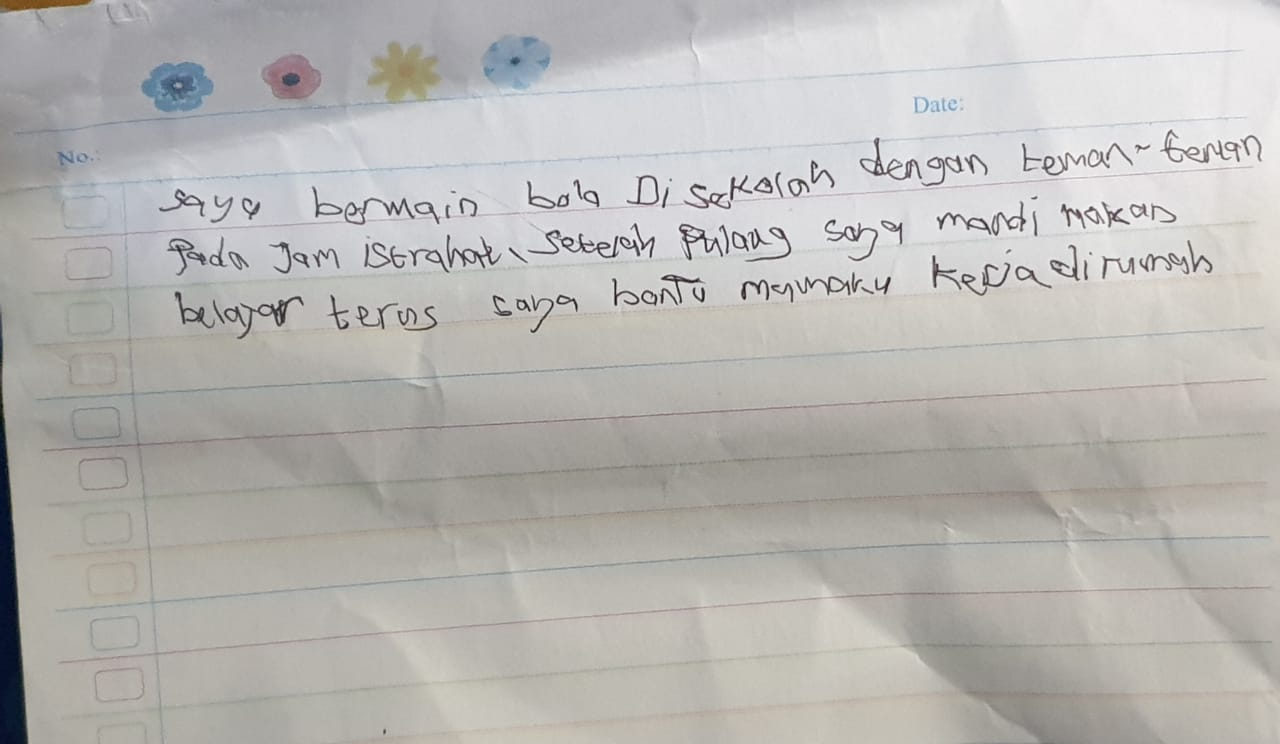 Date:
No.:
saya bermain bola Di sekolah dengan teman~teman
Pada Jam istrahat, setelah Pulang saya mandi makan
belajar terus saya bantu mamaku kerja dirumah